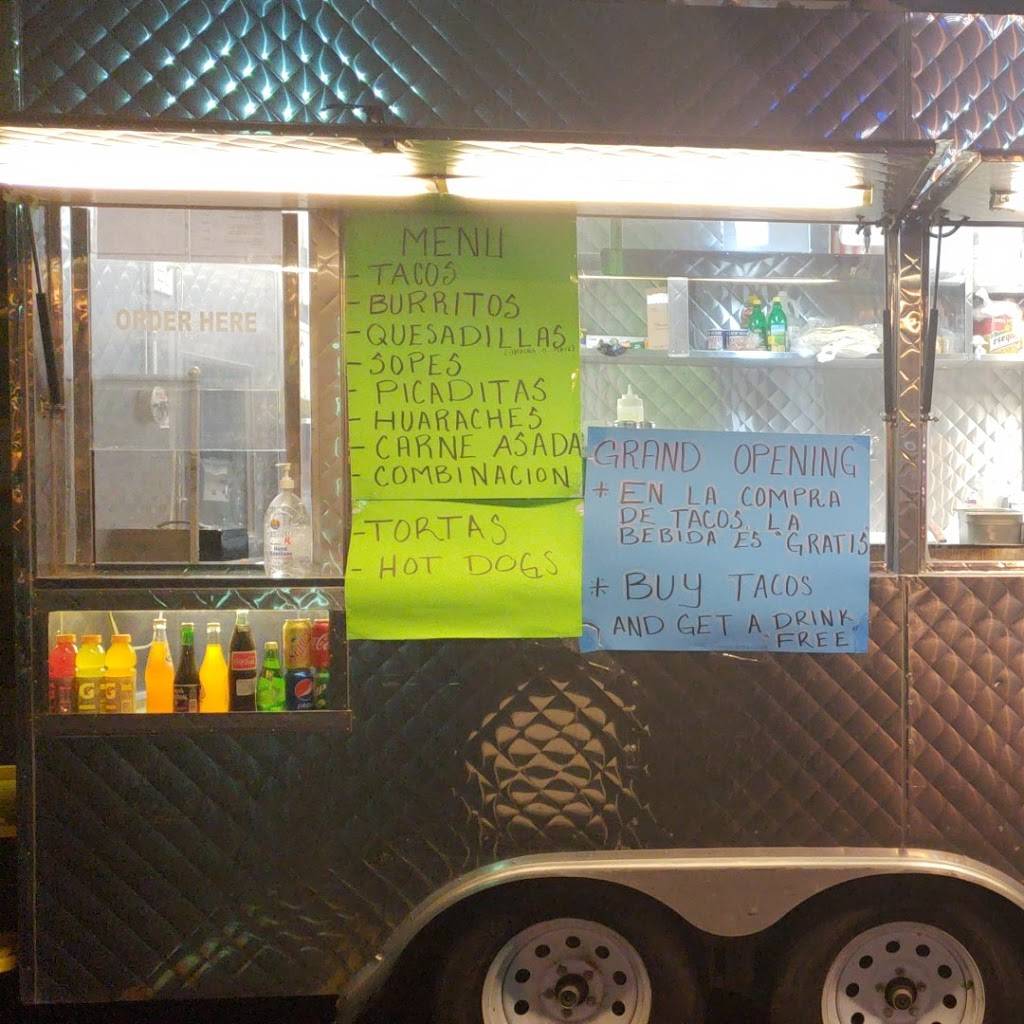 ORDER HERE
MENU
- TACOS
- BURRITOS
- QUESADILLAS
- SOPES
- PICADITAS
- HUARACHES
- CARNE ASADA
- COMBINACION
- TORTAS
- HOT DOGS
GRAND OPENING
* EN LA COMPRA
DE TACOS LA
BEBIDA ES "GRATIS
* BUY TACOS
AND GET A DRINK
"FREE"
G
G
pepsi